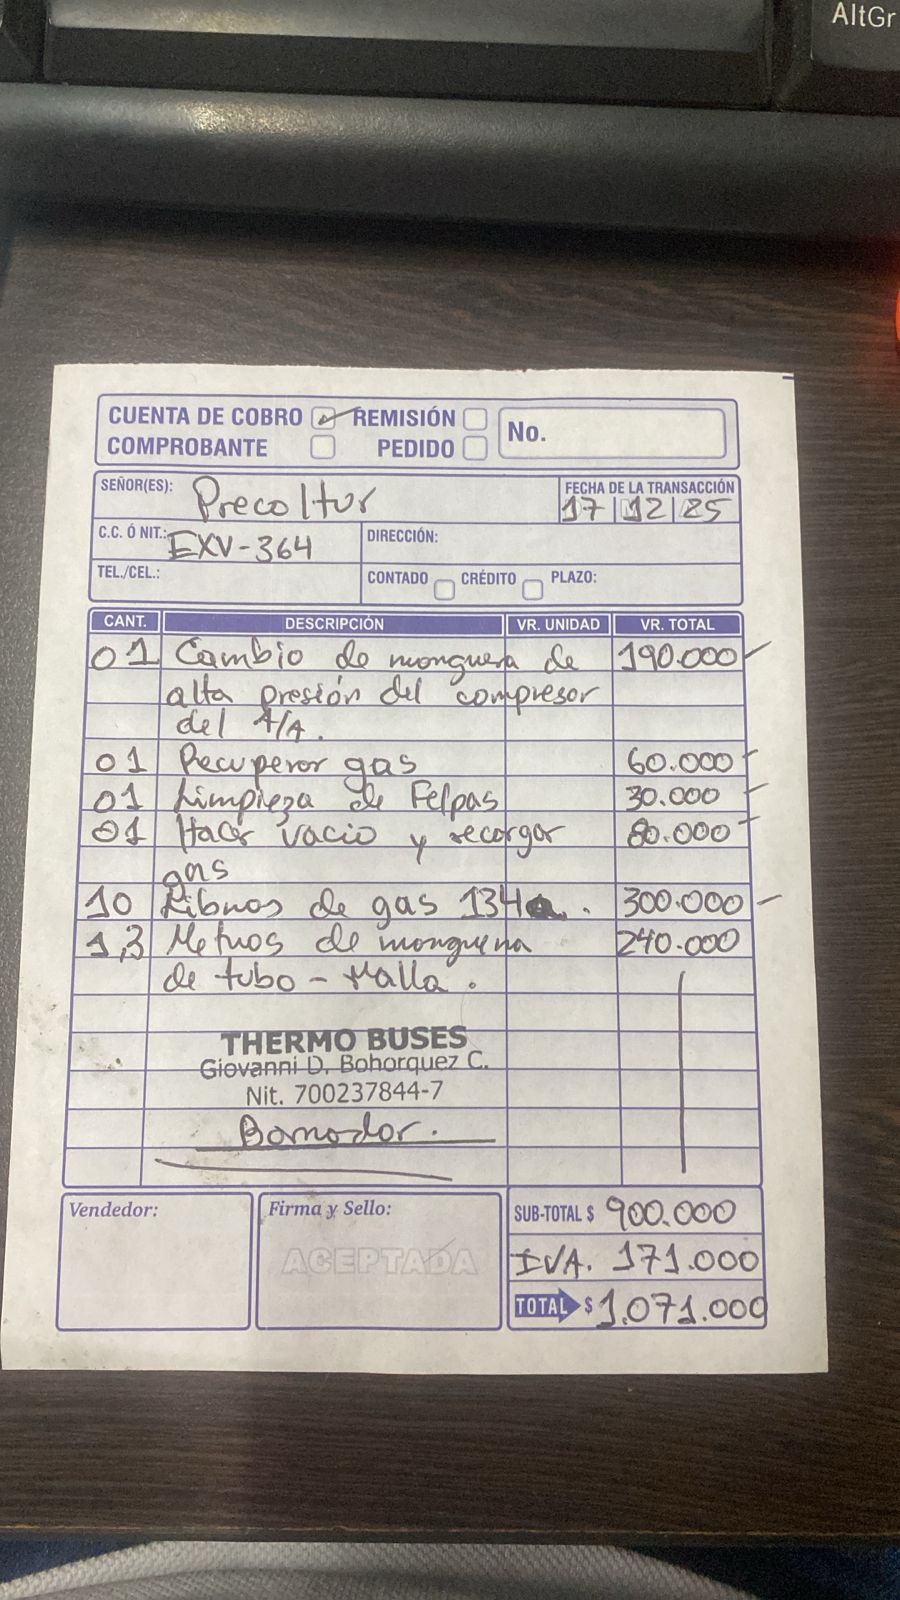 AltGr
CUENTA DE COBRO REMISIÓN
COMPROBANTE PEDIDO
No.
SEÑOR(ES): Precoltur
FECHA DE LA TRANSACCIÓN
17 12 25
C.C. Ó NIT.: EXV-364 DIRECCIÓN:
TEL./CEL.: CONTADO CRÉDITO PLAZO:
CANT. DESCRIPCIÓN VR. UNIDAD VR. TOTAL
01 Cambio de manguera de 190.000
alta presión del compresor
del A/A.
01 Recuperar gas 60.000
01 Limpieza de Felpas 30.000
01 Hacer vacio y recargar 80.000
gas
10 Libras de gas 134a. 300.000
1,3 Metros de manguera 240.000
de tubo - Malla.
THERMO BUSES
Giovanni D. Bohorquez C.
Nit. 700237844-7
Vendedor: Firma y Sello:
ACEPTADA
SUB-TOTAL $ 900.000
IVA. 171.000
TOTAL $ 1,071.000